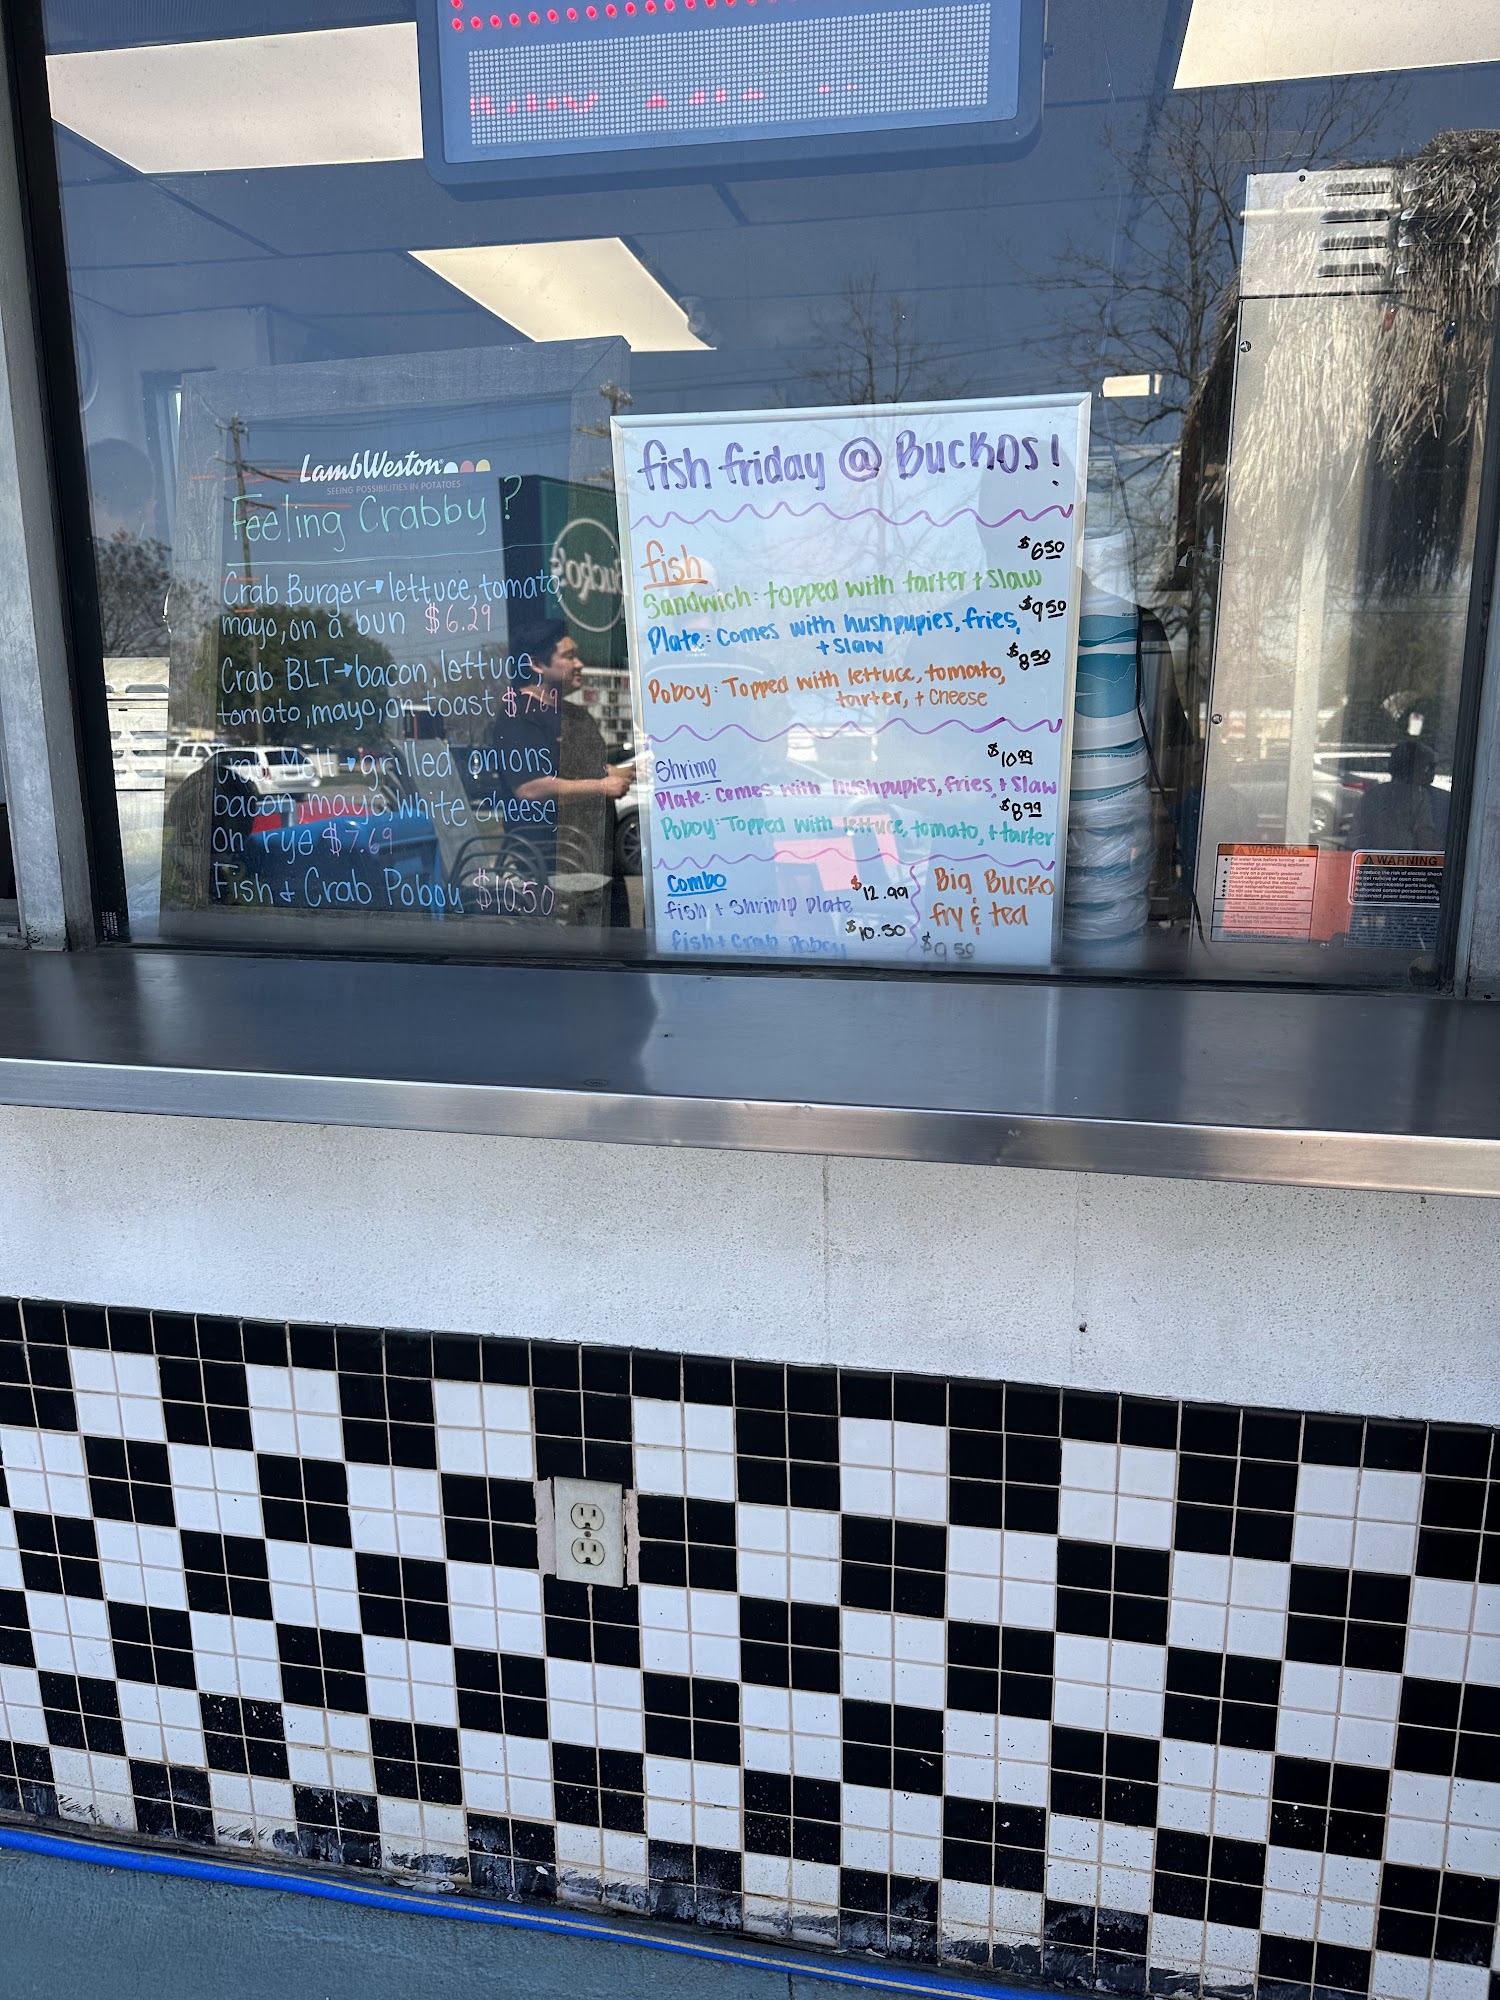 LambWeston
SEEING POSSIBILITIES IN POTATOES
Feeling Crabby?
Crab Burger→lettuce, tomato,
mayo, on a bun $6.29
Crab BLT→bacon, lettuce,
tomato, mayo, on toast $7.69
Crab Melt→grilled onions,
bacon, mayo, white cheese,
on rye $7.69
Fish & Crab Poboy $10.50
fish friday @ Buckos!
fish
$6.50
Sandwich: topped with tarter + Slaw
Plate: Comes with hushpupies, fries, $9.50
+ Slaw
$8.50
Poboy: Topped with lettuce, tomato,
tarter, + Cheese
Shrimp
$10.99
Plate: Comes with hushpupies, fries, + Slaw
$8.99
Poboy: Topped with lettuce, tomato, + tarter
Combo
$12.99
fish + Shrimp Plate
$10.50
fish + Crab Poboy
Big Bucko
fry & tea
$9.50
Bucko's
WARNING
WARNING